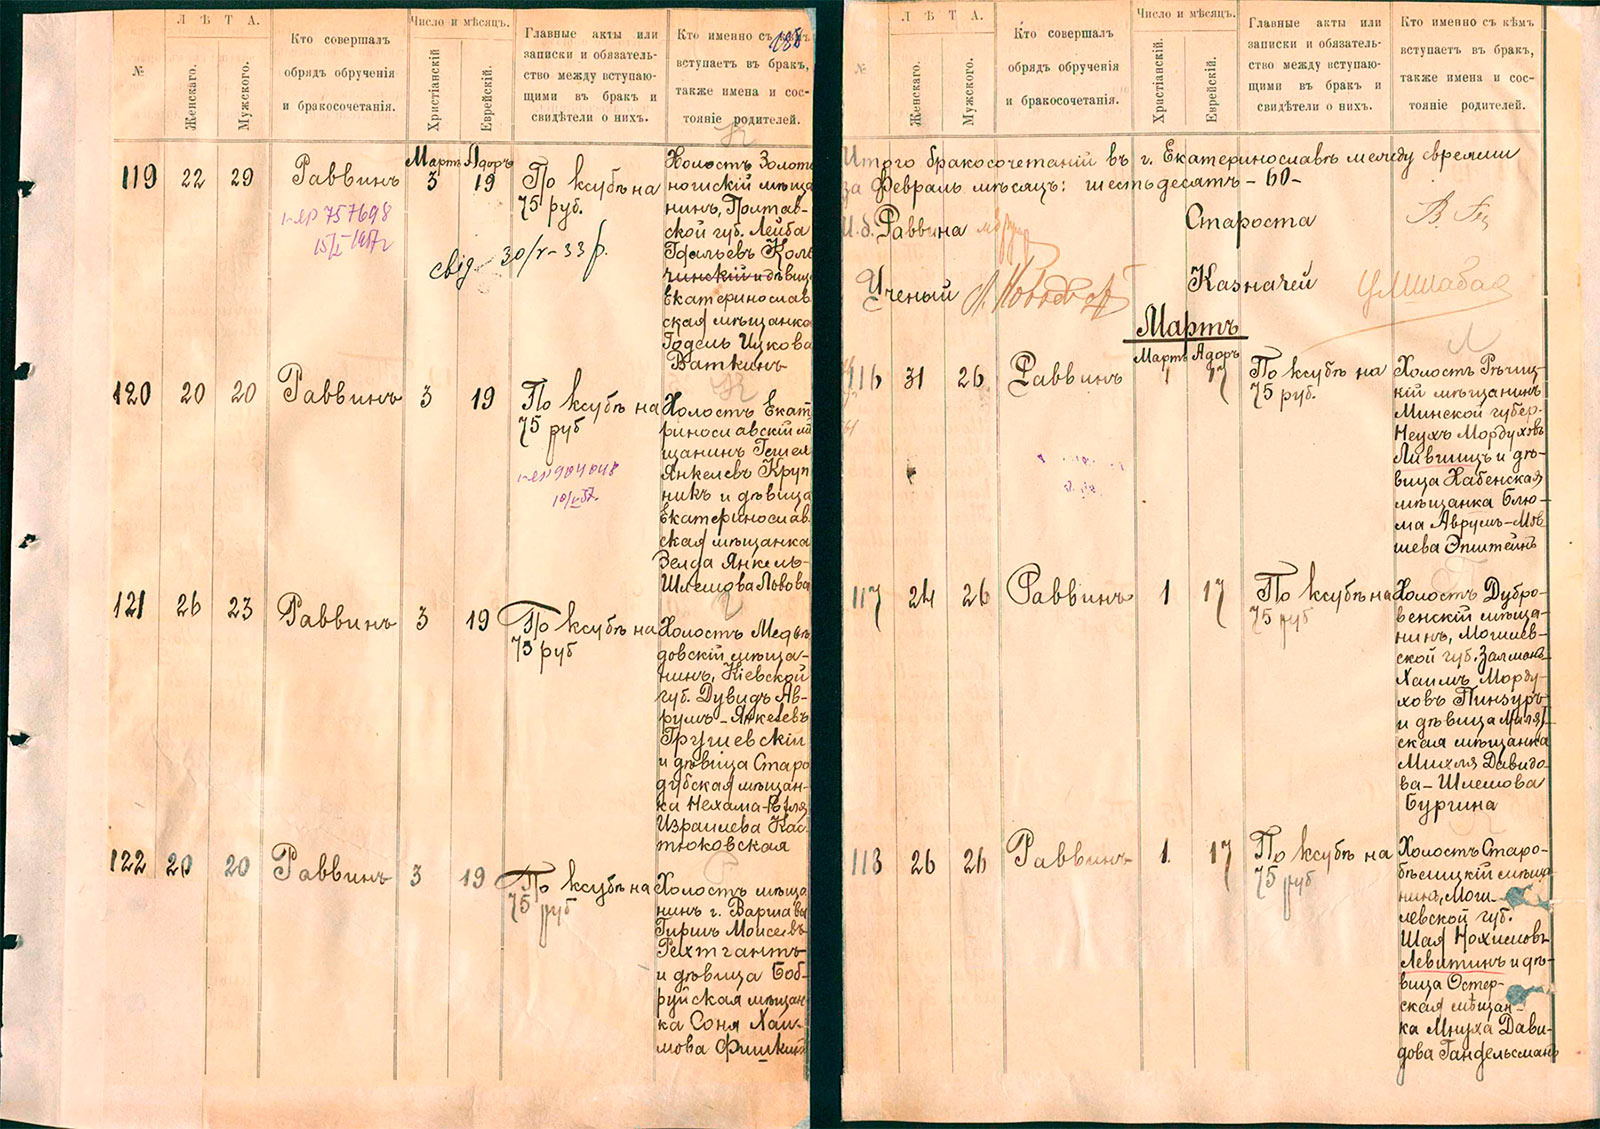 Л Ѣ Т А.
Число и мѣсяцъ.
№
Женскаго.
Мужского.
Кто совершалъ
обрядъ обрученія
и бракосочетанія.
Христіанскій
Еврейскій.
Главные акты или
записки и обязатель-
ство между вступаю-
щими въ бракъ и
свидѣтели о нихъ.
Кто именно съ кѣмъ
вступаетъ въ бракъ,
также имена и сос-
тояніе родителей.
119 22 29 Раввинъ
Мартъ Адоръ
3 19
По ксубѣ на
75 руб.
757698
свід. 30/V-33 р.
Холостъ Золото
ношскій мѣща
нинъ, Полтав-
ской губ. Лейба
чинскій и дѣвица
Екатеринослав
ская мѣщанка
Годель Ицкова
Ваткинъ
120 20 20 Раввинъ 3 19
По ксубѣ на
75 руб
904048
Холостъ Екат
риносавскій мѣ
щанинъ Гешел
Янкелевъ Круп
никъ и дѣвица
Екатеринослав
ская мѣщанка
Зелда Янкель-
Шлемова Львова
121 26 23 Раввинъ 3 19
По ксубѣ на
75 руб
Холостъ Медвѣ
довскій мѣща-
нинъ, Кіевской
губ. Дувидъ Ав-
румъ-Янкелевъ
Грушевскій
и дѣвица Старо
дубская мѣщан-
ка Нехама-Рейля
Израилева Кас
тюковская
122 20 20 Раввинъ 3 19
По ксубѣ на
75 руб
Холостъ мѣща
нинъ г. Варшавы
Гиршъ Моисеевъ
Рехтгантъ
и дѣвица Боб-
руйская мѣщан
ка Соня Хаи-
мова Фишкинъ
Л Ѣ Т А.
Число и мѣсяцъ.
№
Женскаго.
Мужского.
Кто совершалъ
обрядъ обрученія
и бракосочетанія.
Христіанскій.
Еврейскій.
Главные акты или
записки и обязатель-
ство между вступаю-
щими въ бракъ и
свидѣтели о нихъ.
Кто именно съ кѣмъ
вступаетъ въ бракъ,
также имена и сос-
тояніе родителей.
Итого бракосочетаній въ г. Екатеринославѣ между евреями
за Февраль мѣсяцъ: шестьдесятъ - 60 -
И.д. Раввина
Староста
Ученый
Казначей
Мартъ
Мартъ Адоръ
116 31 26 Раввинъ 1 17
По ксубѣ на
75 руб.
Холостъ Рѣчиц-
кій мѣщанинъ
Минской губер-
Неухъ Мордуховъ
Лившицъ и дѣ-
вица Хабенская
мѣщанка Блю-
ма Аврумъ-Мов
шева Эпштейнъ
117 24 26 Раввинъ 1 17
По ксубѣ на
75 руб
Холостъ Дубро-
венскій мѣща-
нинъ, Могилев-
ской губ. Залмонъ-
Хаимъ Морду-
ховъ Пинзуръ
и дѣвица
ская мѣщанка
Михля Давидо-
ва-Шлемова
Бургина
118 26 26 Раввинъ 1 17
По ксубѣ на
75 руб
Холостъ Старо-
бѣлицкій мѣща
нинъ, Моги-
левской губ.
Шая Нохимовъ
Левитинъ и дѣ-
вица Остер-
ская мѣщан-
ка Мнуха Дави-
дова Гандельсманъ